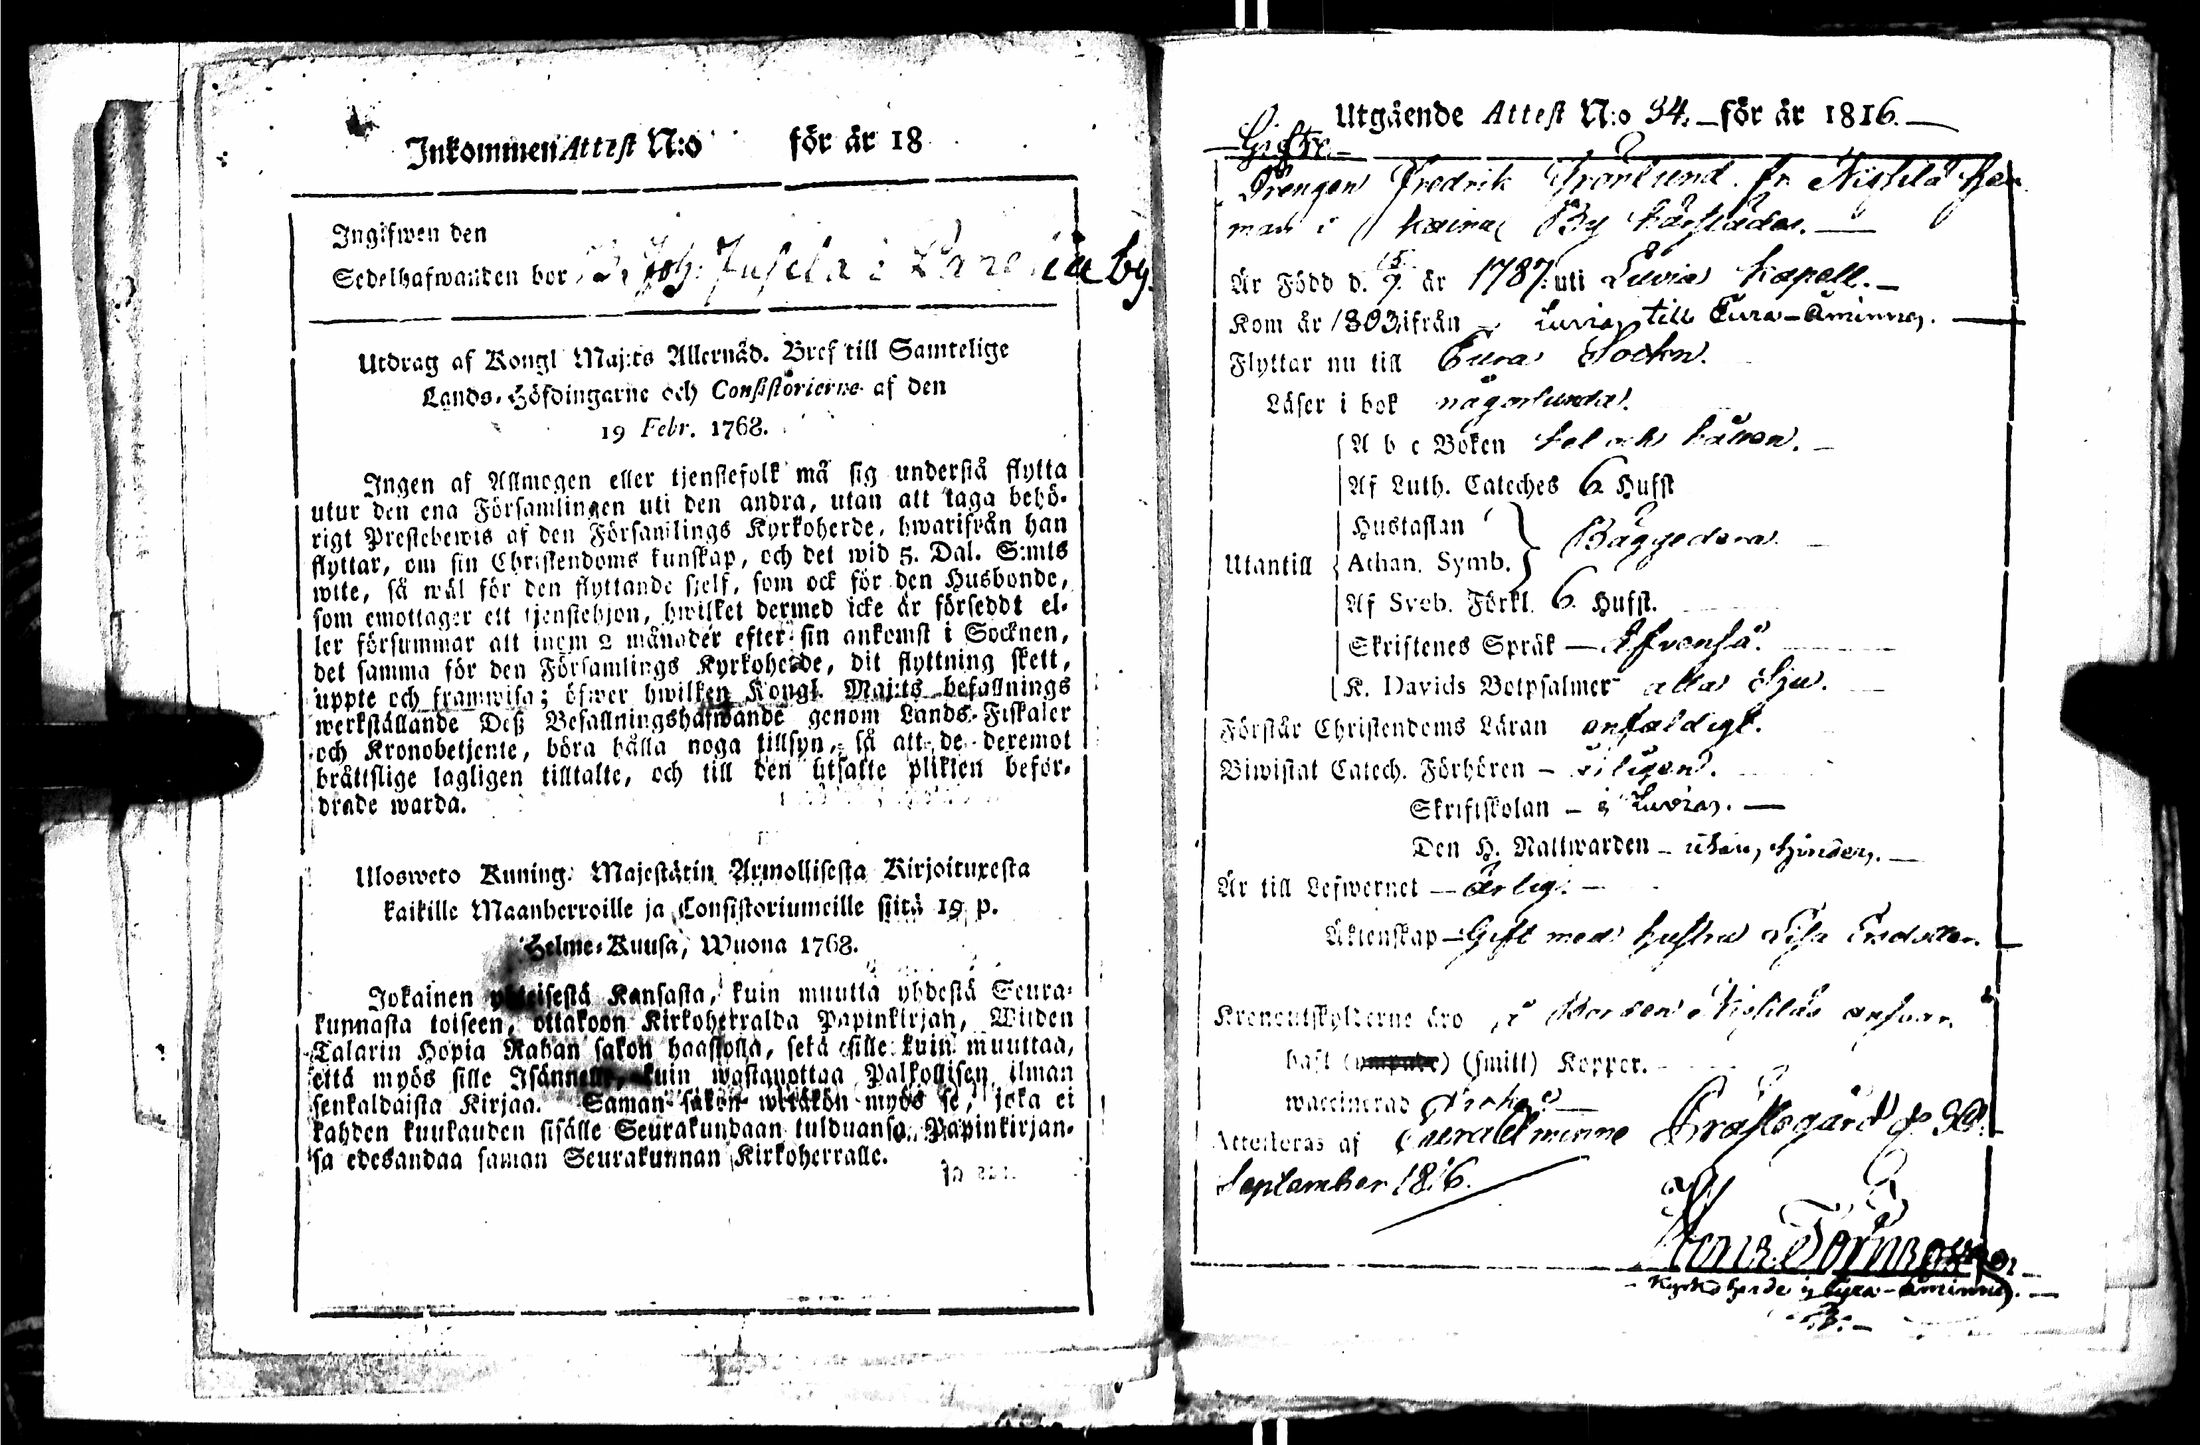 Inkommen Attest N:o för år 18
Ingifwen den
Sedelhafwanden bor Joh. Jusela i by.
Utdrag af Kongl Maj:ts Allernåd. Bref till Samtelige
Lands-Höfdingarne och Consistorierne af den
19 Febr. 1768.
Ingen af Allmogen eller tjenstefolk må sig understå flytta
utur den ena Församlingen uti den andra, utan att taga behö-
rigt Prestebewis af den Församlings Kyrkoherde, hwarifrån han
flyttar, om sin Christendoms kunskap, och det wid 5. Dal. S:mts
wite, så wäl för den flyttande sjelf, som ock för den Husbonde,
som emottager ett tjenstehjon, hwilket dermed icke är försedt el-
ler försummar att inom 2 månader efter sin ankomst i Socknen,
det samma för den Församlings Kyrkoherde, dit flyttning skett,
uppte och framwisa; öfwer hwilken Kongl. Maj:ts befallnings
werkställande Deß Befallningshafwande genom Lands-Fiskaler
och Kronobetjente, böra hålla noga tillsyn, så att de deremot
bråttslige lagligen tilltalte, och till den utsatte plikten beför-
drade warda.
Ulosweto Kuning. Majestätin Armollisesta Kirjoituxesta
kaikille Maanherroille ja Consistoriumeille siitä 19 p.
Helme-Kuusa, Wuona 1768.
Jokainen yhteisestä Kansasta, kuin muuttä yhdestä Seura-
kunnasta toiseen, ottakoon Kirkoherralda Papinkirjan, Wiiden
Talarin Hopia Rahan sakon haastolla, sekä sille kuin muuttaa,
että myös sille Isännelle, kuin wastanottaa Palkollisen ilman
senkaldaista Kirjaa. Saman sakon wetäkön myös se, joka ei
kahden kuukauden sisälle Seurakundaan tulduansa Papinkirjan-
sa edesandaa saman Seurakunnan Kirkoherralle.
Utgående Attest N:o 34. för år 1816.
Gifte
Drengen Fredrik Grönlund fr. Hem
man i By härstädes.
Är Född d. 15/7. år 1787. uti Luvia Kapell.
Kom år 1803 ifrån Luvia till Eura-Åminne.
Flyttar nu till Eura Sockn.
Läser i bok någorlunda.
A b c Boken hel och hållen.
Af Luth. Cateches 6. Hufst
Hustaflan
Utantill Athan. Symb. Bäggedera
Af Sveb. Förkl. 6. Hufst.
Skriftenes Språk Afvensä.
K. Davids Botpsalmer alla Sju.
Förstår Christendoms Läran enfaldigt.
Biwistat Catech. Förhören fliligen.
Skriftskolan i Luvia.
Den H. Nattwarden utan hinder.
Är till Lefwernet ärlig.
Äktenskap Gift med hustru Lisa
Kronoutskylderne äro på ansvar.
haft (smitt) Koppor.
waccinerad
Attesteras af Eura Åminne Prästegård d 30.
September 1816.
af
Kyrkoherde i Eura-Åminne.